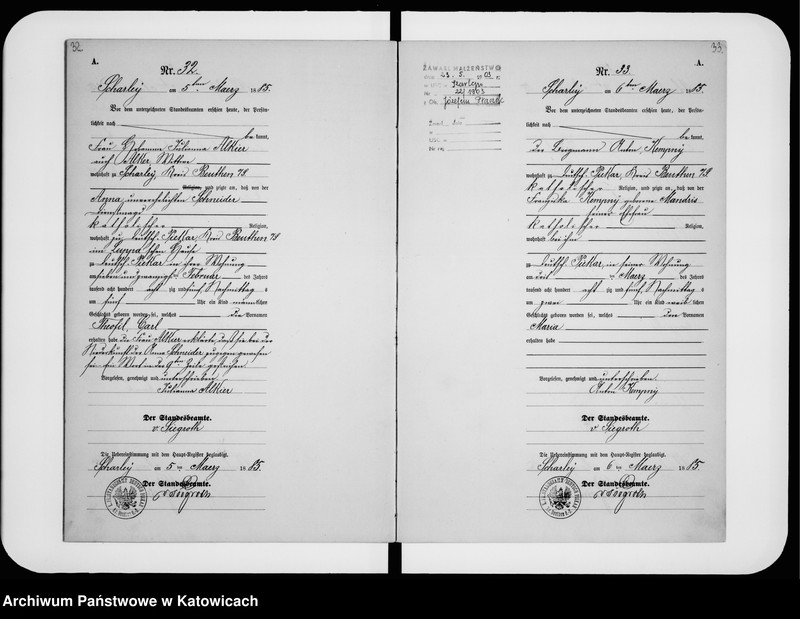 32
A.
Nr. 32.
Scharley am 5ten Maerz 1885.
Vor dem unterzeichneten Standesbeamten erschien heute, der Persön-
lichkeit nach
bekannt,
Frau Hebamme Julianna Altkier
wohnhaft zu Scharley, Kreis Beuthen
Religion, und zeigte an, daß von der
Anna, unverehelichten Schneider
Dienstmagd
katholischer Religion,
wohnhaft zu Deutsch Piekar, Kreis Beuthen
zu Deutsch Piekar in ihrer Wohnung
am sieben und zwanzigsten Februar des Jahres
tausend acht hundert achtzig und fünf Nachmittags
um fünf Uhr ein Kind männlichen
Geschlechts geboren worden sei, welches die Vornamen
Theofil, Carl
erhalten habe. Die Frau Altkier erklärte, daß sie bei der
Niederkunft der Anna Schneider zugegen gewesen
sei.
Vorgelesen, genehmigt und unterschrieben
Julianna Altkier
Der Standesbeamte.
v. Siegroth
Die Uebereinstimmung mit dem Haupt-Register beglaubigt.
Scharley am 5ten Maerz 1885.
Der Standesbeamte.
v. Siegroth
33
A.
ZAWARŁ MAŁŻEŃSTWO
Nr. 33.
Scharley am 6ten Maerz 1885.
Vor dem unterzeichneten Standesbeamten erschien heute, der Persön-
lichkeit nach
bekannt,
der Bergmann Anton Kempny
wohnhaft zu Deutsch Piekar, Kreis Beuthen
katholischer Religion, und zeigte an, daß von der
Franziska Kempny geborene Mandris
seiner Ehefrau
katholischer Religion,
wohnhaft bei ihm
zu Deutsch Piekar, in seiner Wohnung
am drei ten Maerz des Jahres
tausend acht hundert achtzig und fünf, Nachmittags
um zwei Uhr ein Kind weiblichen
Geschlechts geboren worden sei, welches den Vornamen
Maria
erhalten habe
Vorgelesen, genehmigt und unterschrieben
Anton Kempny
Der Standesbeamte.
v. Siegroth
Die Uebereinstimmung mit dem Haupt-Register beglaubigt.
Scharley am 6ten Maerz 1885.
Der Standesbeamte.
v. Siegroth
Archiwum Państwowe w Katowicach